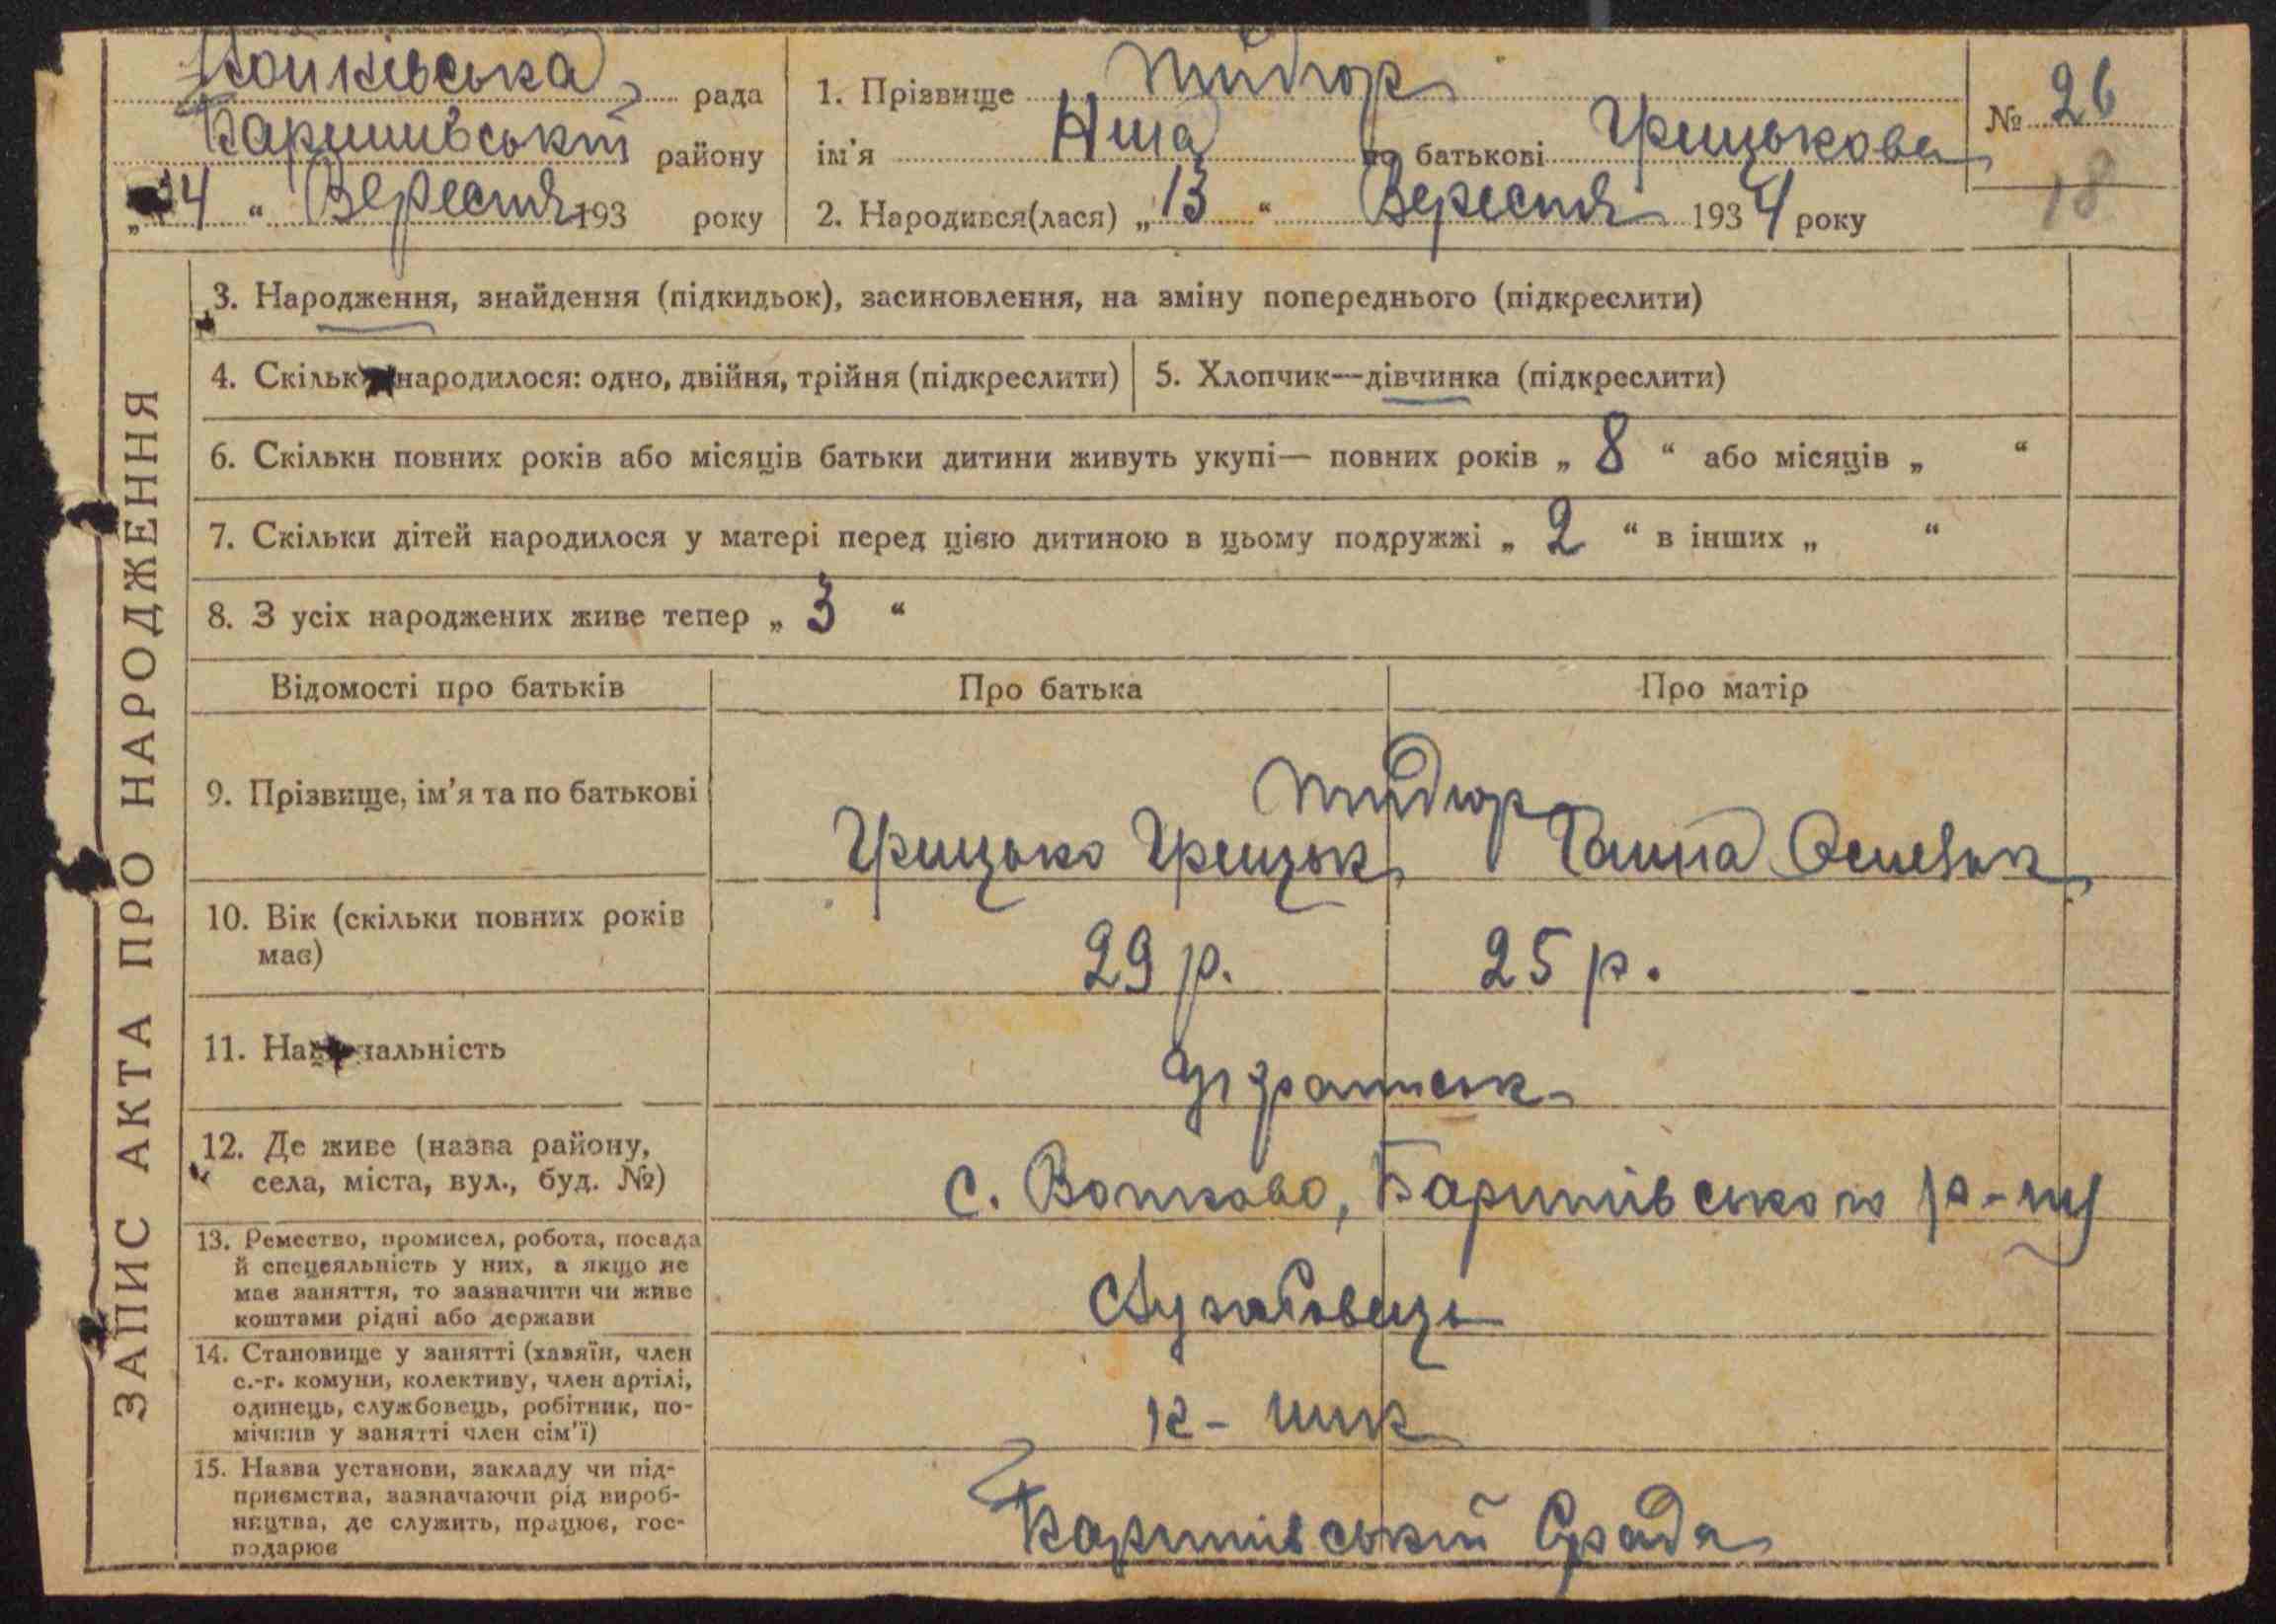 Войківська рада
Баришивський району
„24“ Вересня 193 року
1. Прізвище
ім'я Ніна по батькові Грицькова
2. Народився(лася) „13“ Вересня 1934 року
№ 26
18
ЗАПИС АКТА ПРО НАРОДЖЕННЯ
3. Народження, знайдення (підкидьок), засиновлення, на зміну попереднього (підкреслити)
4. Скільки народилося: одно, двійня, трійня (підкреслити)
5. Хлопчик—дівчинка (підкреслити)
6. Скільки повних років або місяців батьки дитини живуть укупі— повних років „8“ або місяців „ “
7. Скільки дітей народилося у матері перед цією дитиною в цьому подружжі „2“ в інших „ “
8. З усіх народжених живе тепер „3“
Відомості про батьків
Про батька
Про матір
9. Прізвище, ім'я та по батькові
Грицько Грицьк
Ганна
10. Вік (скільки повних років
має)
29 р.
25 р.
11. Національність
12. Де живе (назва району,
села, міста, вул., буд. №)
с. Баришівського р-ну
13. Ремество, промисел, робота, посада
й спецеяльність у них, а якщо не
має заняття, то зазначити чи живе
коштами рідні або держави
14. Становище у занятті (хазяїн, член
с.-г. комуни, колективу, член артілі,
одинець, службовець, робітник, по-
мічнив у занятті член сім'ї)
к-ник
15. Назва установи, закладу чи під-
приємства, зазначаючи рід вироб-
ництва, де служить, працює, гос-
подарює
Баришівський Срада